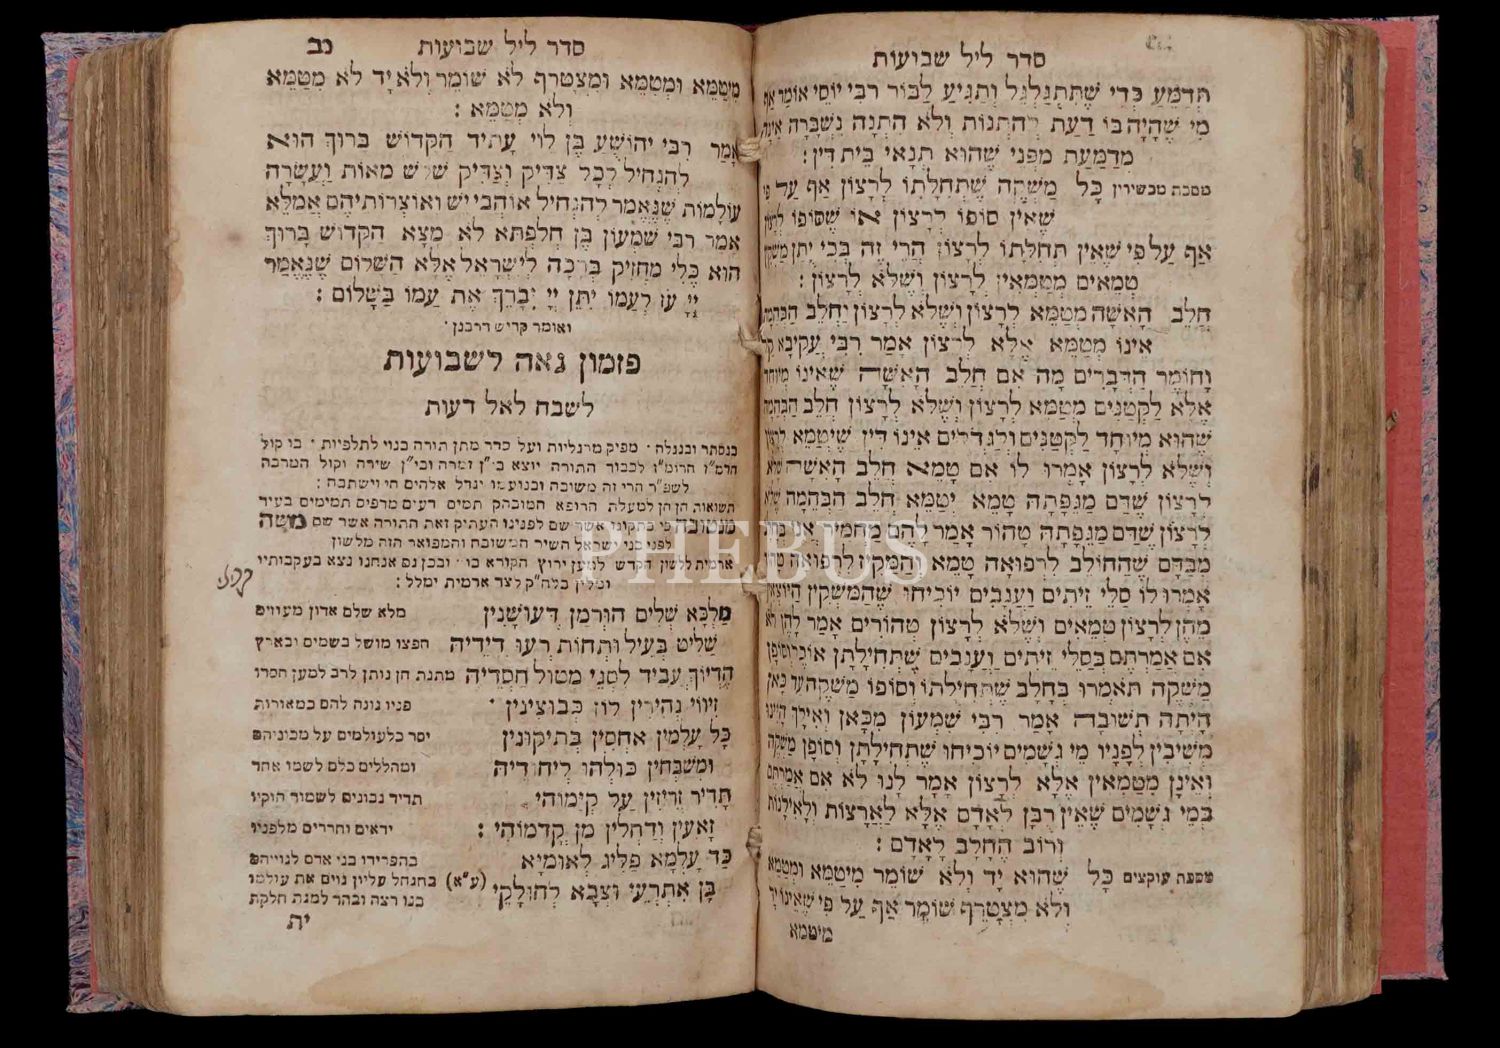 סדר ליל שבועות
תִּדְמַע כְּדֵי שֶׁתִּתְגַּלְגֵּל וְתַגִּיעַ לַבּוֹר רבי יוסי אומר אף
מִי שֶׁהָיָה בּוֹ דַעַת לְהַתְנוֹת וְלֹא הִתְנָה נִשְׁבְּרָה אינה
מְדַמַּעַת מִפְּנֵי שֶׁהוּא תְנָאֵי בֵּית דִּין :
מסכת מכשירין כָּל מַשְׁקֶה שֶׁתְּחִלָּתוֹ לְרָצוֹן אַף עַל פי
שֶׁאֵין סוֹפוֹ לְרָצוֹן אוֹ שֶׁסּוֹפוֹ לרצון
אַף עַל פִּי שֶׁאֵין תְּחִלָּתוֹ לְרָצוֹן הֲרֵי זֶה בְּכִי יֻתַּן משקין
טְמֵאִים מְטַמְּאִין לְרָצוֹן וְשֶׁלֹּא לְרָצוֹן :
חֲלֵב הָאִשָּׁה מְטַמֵּא לְרָצוֹן וְשֶׁלֹּא לְרָצוֹן וַחֲלֵב הַבְּהֵמָה
אֵינוֹ מְטַמֵּא אֶלָּא לְרָצוֹן אָמַר רִבִּי עֲקִיבָא קל
וָחוֹמֶר הַדְּבָרִים מָה אִם חֲלֵב הָאִשָּׁה שֶׁאֵינוֹ מיוחד
אֶלָּא לַקְּטַנִּים מְטַמֵּא לְרָצוֹן וְשֶׁלֹּא לְרָצוֹן חֲלֵב הַבְּהֵמָה
שֶׁהוּא מְיוּחָד לַקְּטַנִּים וְלַגְּדֹלִים אֵינוֹ דִּין שֶׁיְּטַמֵּא לרצון
וְשֶׁלֹּא לְרָצוֹן אָמְרוּ לוֹ אִם טָמֵא חֲלֵב הָאִשָּׁה שלא
לְרָצוֹן שֶׁדַּם מַגֵּפָתָהּ טָמֵא יְטַמֵּא חֲלֵב הַבְּהֵמָה שלא
לְרָצוֹן שֶׁדַּם מַגֵּפָתָהּ טָהוֹר אָמַר לָהֶם מַחְמִיר אֲנִי בחלב
מִבַּדָּם שֶׁהַחוֹלֵב לִרְפוּאָה טָמֵא וְהַמַּקִּיז לִרְפוּאָה טהור
אָמְרוּ לוֹ סַלֵּי זֵיתִים וַעֲנָבִים יוֹכִיחוּ שֶׁהַמַּשְׁקִין היוצאין
מֵהֶן לְרָצוֹן טְמֵאִים וְשֶׁלֹּא לְרָצוֹן טְהוֹרִים אָמַר לָהֶן לא
אִם אֲמַרְתֶּם בְּסַלֵּי זֵיתִים וַעֲנָבִים שֶׁתְּחִילָּתָן אוכל וסופן
מַשְׁקֶה תֹּאמְרוּ בְּחָלָב שֶׁתְּחִילָּתוֹ וְסוֹפוֹ מַשְׁקֶה עד כאן
הָיְתָה תְּשׁוּבָה אָמַר רִבִּי שִׁמְעוֹן מִכָּאן וְאֵילָךְ היינו
מְשִׁיבִין לְפָנָיו מֵי גְשָׁמִים יוֹכִיחוּ שֶׁתְּחִילָּתָן וְסוֹפָן משקה
וְאֵינָן מְטַמְּאִין אֶלָּא לְרָצוֹן אָמַר לָנוּ לֹא אִם אמרתם
בְּמֵי גְשָׁמִים שֶׁאֵין רֻבָּן לְאָדָם אֶלָּא לַאֲרָצוֹת וְלָאִילָנוֹת
וְרוֹב הֶחָלָב לָאָדָם :
מסכת עוקצים כָּל שֶׁהוּא יָד וְלֹא שׁוֹמֵר מִיטַּמֵּא וּמְטַמֵּא
וְלֹא מִצְטָרֵף שׁוֹמֵר אַף עַל פִּי שֶׁאֵינוֹ יד
מיטמא
סדר ליל שבועות נב
מִיטַּמֵּא וּמְטַמֵּא וּמִצְטָרֵף לֹא שׁוֹמֵר וְלֹא יָד לֹא מִטַּמֵּא
וְלֹא מְטַמֵּא :
אָמַר רִבִּי יְהוֹשֻׁעַ בֶּן לֵוִי עָתִיד הַקָּדוֹשׁ בָּרוּךְ הוּא
לְהַנְחִיל לְכָל צַדִּיק וְצַדִּיק שְׁלֹשׁ מֵאוֹת וַעֲשָׂרָה
עוֹלָמוֹת שֶׁנֶּאֱמַר לְהַנְחִיל אוֹהֲבַי יֵשׁ וְאוֹצְרוֹתֵיהֶם אֲמַלֵּא
אָמַר רִבִּי שִׁמְעוֹן בֶּן חֲלַפְתָּא לֹא מָצָא הַקָּדוֹשׁ בָּרוּךְ
הוּא כְּלִי מַחֲזִיק בְּרָכָה לְיִשְׂרָאֵל אֶלָּא הַשָּׁלוֹם שֶׁנֶּאֱמַר
יְיָ עֹז לְעַמּוֹ יִתֵּן יְיָ יְבָרֵךְ אֶת עַמּוֹ בַשָּׁלוֹם :
ואומר קדיש דרבנן ·
פזמון נאה לשבועות
לשבח לאל דעות
בנסתר ובנגלה · מפיק מרגליות ועל סדר מתן תורה בנוי לתלפיות · בו קול
לכבוד התורה יוצא זמרה שירה וקול המרבה
הרי זה משובח יגדל אלהים חי וישתבח :
תשואות חן חן למעלת הרופא המובהק תמים דעים
מנטובה כי בתקונו אשר שם לפנינו העתיק זאת התורה אשר שם משה
לפני בני ישראל השיר המשובח והמפואר הזה מלשון
ארמית ללשון הקדש למען ירוץ הקורא בו · ובכן גם אנחנו נצא בעקבותיו
ומלין בלה"ק לצד ארמית ימלל :
מַלְכָּא שְׁלִים הוּרְמַן דְּעוּשְׁנִין מלא שלם אדון מעוזים
שַׁלִּיט בְּעֵיל וּתְחוֹת רְעוּ דִידֵיהּ חפצו מושל בשמים ובארץ
עָבִיד לְסָנֵי מְטוֹל חִסְדֵּיהּ מתנת חן נותן לרב למען חסדו
זִיווֹי נְהִירִין לְוָן כְּבוּצִינִין · פניו נוגה להם כמאורות
כָּל עָלְמִין אַחְסִין בְּתִיקּוּנִין יסד כלעולמים על מכוניהם
וּמְשַׁבְּחִין כּוּלְּהוּ לְיִחוּדֵיהּ ומהללים כלם לשמו אחד
תָּדִיר זְרִיזִין עַל קְיָמוֹהִי תדיר נבונים לשמור חוקיו
זָאעִין וְדַחְלִין מִן קֳדָמוֹהִי : יראים וחרדים מלפניו
כַּד עָלְמָא פַּלִּיג לְאוּמַיָּא בהפרידו בני אדם לגוייהם
בָּן אִתְרְעִי וּצְבָא לְחוּלָקֵי (ע"א) בהנחל עליון גוים את עולמו
בנו רצה ובחר למנת חלקת
ית
PHEBUS